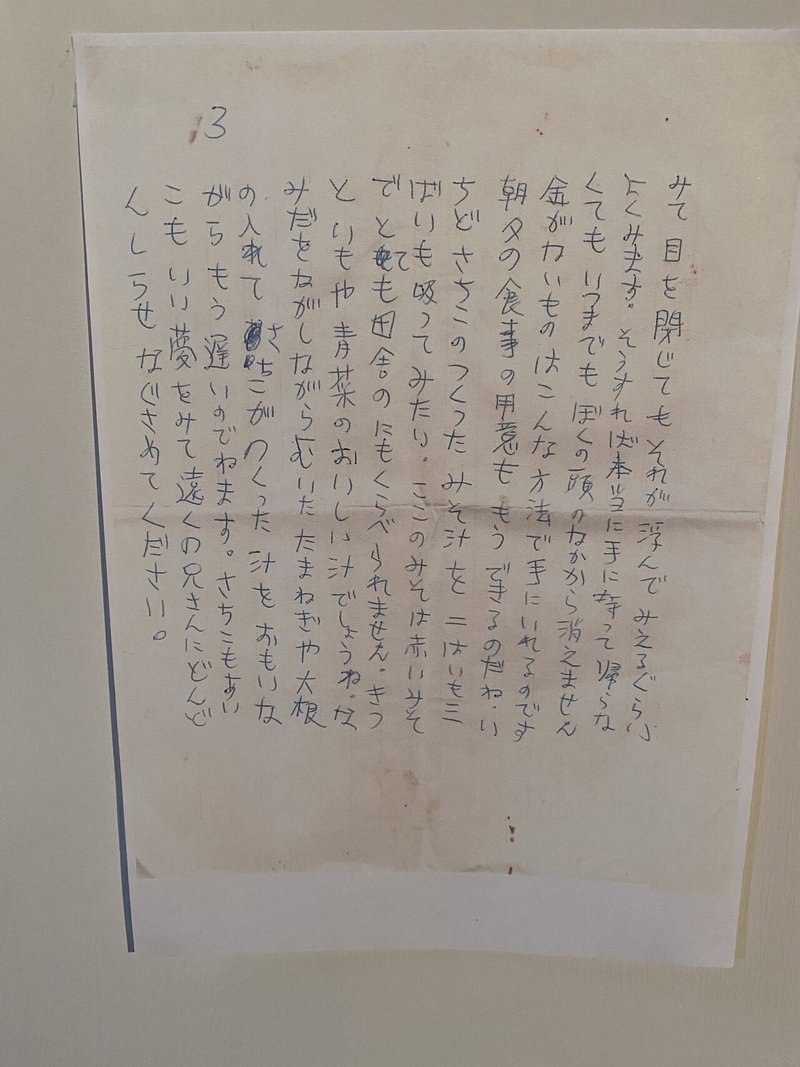 3
みて 目を閉じても それが 浮んで みえるぐらい
よくみます。そうすれば本当に手に持って帰らな
くても いつまでも ぼくの頭のなかから消えません
金がないものはこんな方法で手にいれるのです
朝夕の食事の用意も もうできるのだね。い
ちど さちこのつくった みそ汁を 二はいも三
ばいも吸ってみたい。ここのみそは赤いみそ
でとても田舎のにもくらべられません。きっ
と いもや 青菜のおいしい汁でしょうね。な
みだをながしながらむいた たまねぎや大根
の入れて さちこがつくった 汁を おもいな
がら もう 遅いのでねます。さちこもあい
こも いい夢をみて 遠くの兄さんにどんど
んしらせ なぐさめてください。